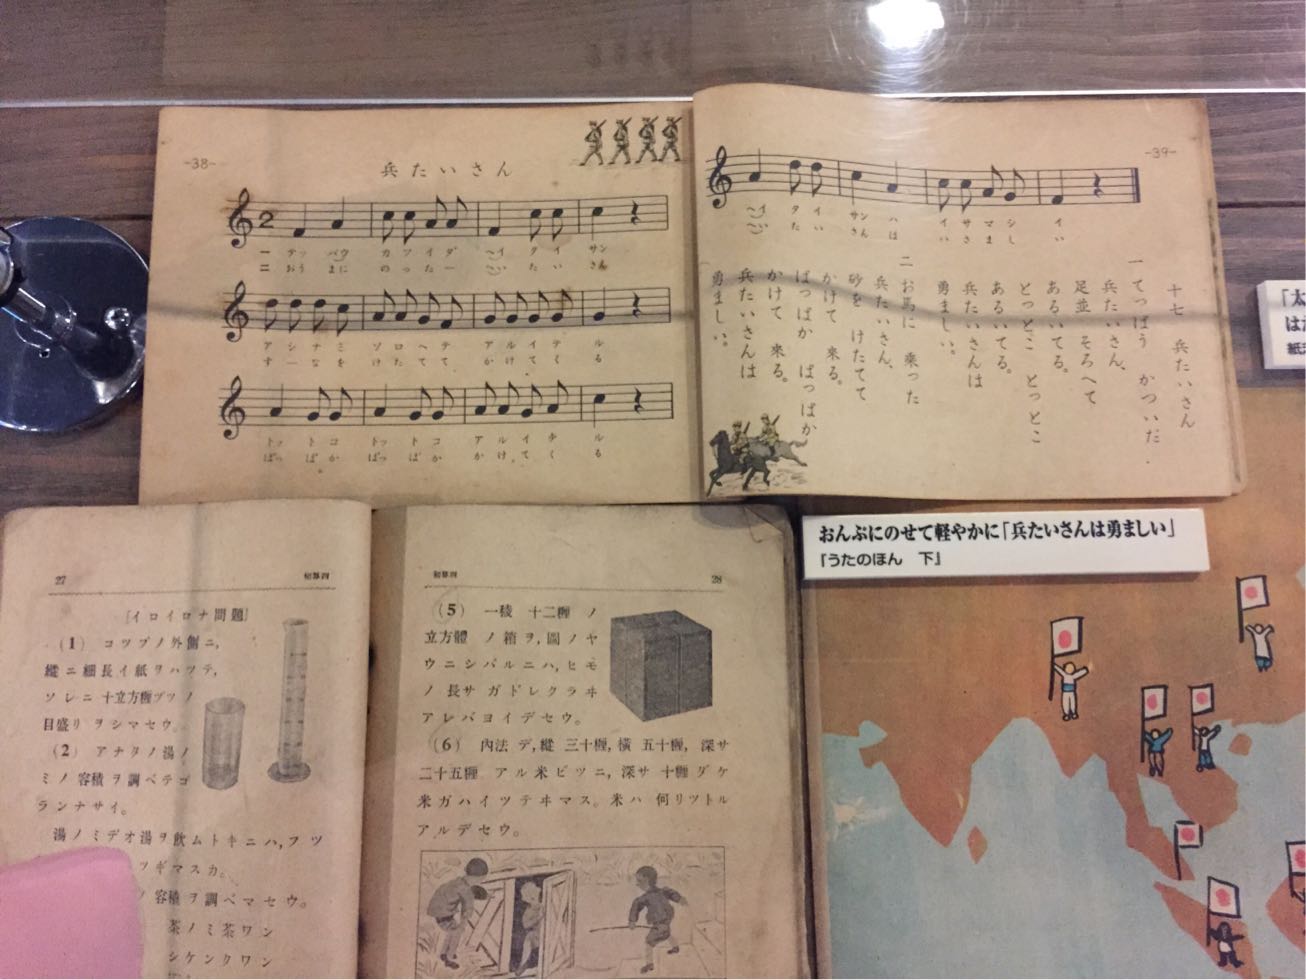 -38-
兵たいさん
2
一 テッ パウ カ ツ イ ダ ヘイ タ イ サン
二 おう まに の っ た ー へい た い さん
ア シ ナ ミ ソ ロ ヘ テ ア ル イ テ ル
す ー な を け た て て か け て く る
トッ ト コ トッ ト コ ア ル イ テ ル
ぱっ ぱ か ぱっ ぱ か か け て く る
-39-
ヘイ タ イ サン ハ イ サ マ シ イ
へい た い さん は い さ ま し い
十七 兵たいさん
一 てつぱう かついだ
兵たいさん、
足並 そろへて
あるいてる。
とつとこ とつとこ
あるいてる。
兵たいさんは
勇ましい。
二 お馬に 乗つた
兵たいさん、
砂を けたてて
かけて 來る。
ぱつぱか ぱつぱか
かけて 來る。
兵たいさんは
勇ましい。
「太
は
紙
おんぷにのせて軽やかに「兵たいさんは勇ましい」
『うたのほん 下』
27
初算四
[イロイロナ問題]
(1) コツプノ外側ニ,
縱ニ細長イ紙ヲハツテ,
ソレニ十立方糎ヅツノ
目盛リヲシマセウ。
(2) アナタノ湯ノ
ミノ容積ヲ調ベテゴ
ランナサイ。
湯ノミデオ湯ヲ飮ムトキニハ,フツ
ツギマスカ。
容積ヲ調ベマセウ。
茶ノミ茶ワン
シケンクワン
初算四
28
(5) 一稜 十二糎 ノ
立方體 ノ箱ヲ,圖ノヤ
ウニシバルニハ,ヒモ
ノ長サガドレクラヰ
アレバヨイデセウ。
(6) 內法デ,縱 三十糎,橫 五十糎,深サ
二十五糎 アル米ビツニ,深サ 十糎ダケ
米ガハイツテヰマス。米ハ 何リツトル
アルデセウ。